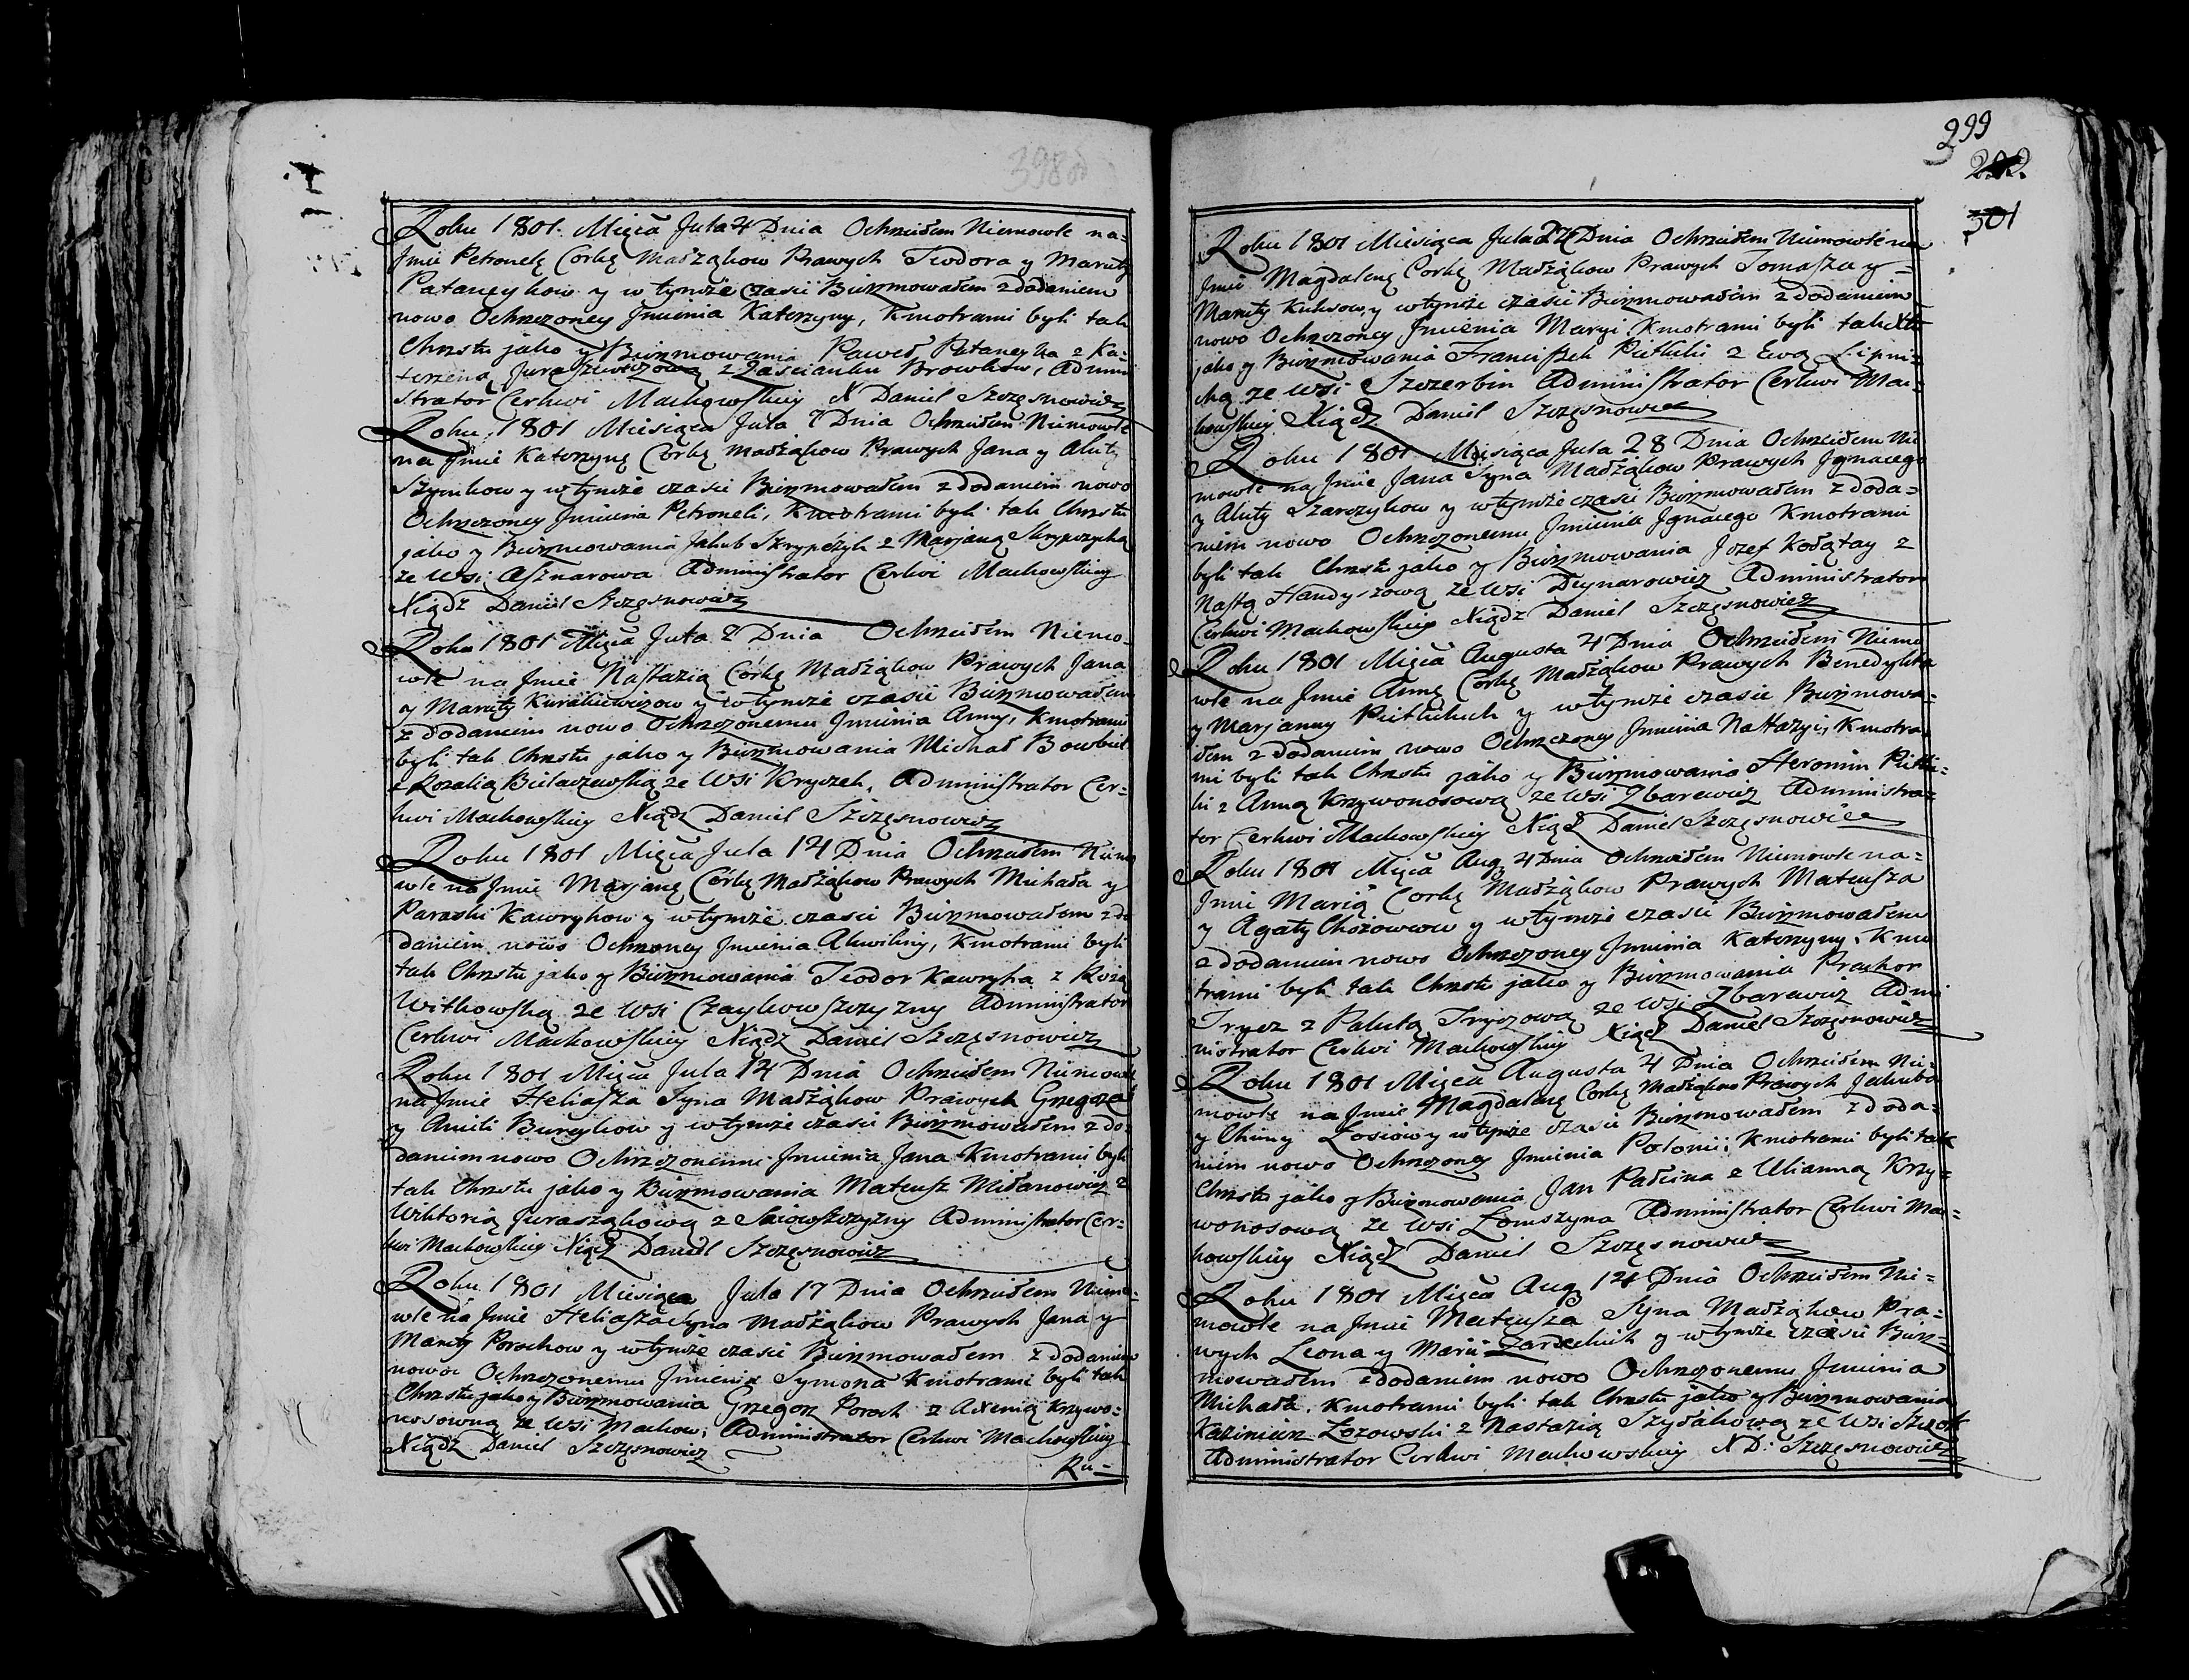 398об
Roku 1801. Mięca Jula 4 Dnia Ochrzciłem Niemowle na=
Jmie Petronelę Corkę Małżąkow Prawych Teodora y Maruty
Pataneykow y w tymże czasie Bierzmowałem z dodaniem
nowo Ochrzczoney Jmienia Katerzyny, Kmotrami byli tak
Chrztu jako y Bierzmowania Paweł Pataneyka z Ka=
terzeną Juraszewiczową z Zascianku Browkow, Admini
strator Cerkwi Machowskiey X Daniel Szczęsnowicz
Roku 1801 Miesiąca Jula Dnia Ochrzciłem Niemowle
na Jmie Katerzynę Corkę Małżąkow Prawych Jana y Aluty
Szymkow y w tymże czasie Bierzmowałem z dodaniem nowo
Ochrzczoney Jmienia Petroneli, Kmotrami byli tak Chrztu
jako y Bierzmowania Jakub Skrypczyk z Marjaną Skrypczyką
ze Wsi Asznarowa Administrator Cerkwi Machowskiey
Xiądz Daniel Szczęsnowicz
Roku 1801 Mięca Jula Dnia Ochrzciłem Niemo=
wle na Jmie Nastazią Córkę Małżąkow Prawych Jana
y Maruty Kurakiewiczow y w tymże czasie Bierzmowałem
z dodaniem nowo Ochrzczonemu Jmienia Anny, Kmotrami
byli tak Chrztu jako y Bierzmowania Michał Bowbiel
z Rozalią Bielaczewską ze Wsi Kryczek, Administrator Cer=
kwi Machowskiey Xiądz Daniel Szczęsnowicz
Roku 1801 Mięca Jula 14 Dnia Ochrzciłem Niemo
wle na Jmie Marjanę Córkę Małżąkow Prawych Michała y
Paraski Kawrykow y w tymże czasie Bierzmowałem z do
daniem nowo Ochrzoney Jmienia Akwiliny, Kmotrami byli
tak Chrztu jako y Bierzmowania Teodor Kawryka z Rozą
Witkowską ze Wsi Czaykowszczyzny Administrator
Cerkwi Machowskiey Xiądz Daniel Szczęsnowicz
Roku 1801 Mięca Jula 14 Dnia Ochrzciłem Niemowle
na Jmie Heliasza Syna Małżąkow Prawych Grzegorza
y Amili Bureykow y w tymże czasie Bierzmowałem z do
daniem nowo Ochrzczonemu Jmienia Jana Kmotrami byli
tak Chrztu jako y Bierzmowania Mateusz Miłanowicz z
Wiktorią Jurasząkową z Administrator Cer=
kwi Machowskiey Xiądz Daniel Szczęsnowicz
Roku 1801 Miesiąca Jula 17 Dnia Ochrzciłem Niemo=
wle na Jmie Heliasza Syna Małżąkow Prawych Jana y
Maruty Porochow y w tymże czasie Bierzmowałem z dodaniem
nowo Ochrzczonemu Jmienia Symona Kmotrami byli tak
Chrztu jako y Bierzmowania Grzegorz Poroch z Axenią Krzywo=
nosowną ze Wsi Machow, Administrator Cerkwi Machowskiey
Xiądz Daniel Szczęsnowicz
Ru=
399
292.
301
Roku 1801 Miesiąca Jula 24 Dnia Ochrzciłem Niemowle na
Jmie Magdalenę Corkę Małżąkow Prawych Tomasza y=
Maruty Kuksow, y w tymże czasie Bierzmowałem z dodaniem
nowo Ochrzczoney Jmienia Maryi Kmotrami byli tak Chr
jako y Bierzmowania Franciszek Pietkiki z Ewą Lipni=
cką ze Wsi Szczerbin Administrator Cerkwi Ma=
chowskiey Xiądz Daniel Szczęsnowicz
Roku 1801 Miesiąca Jula 28 Dnia Ochrzciłem Nie
mowle na Jmie Jana Syna Małżąkow Prawych Jgnacego
y Aluty Szarczykow y w tymże czasie Bierzmowałem z doda=
niem nowo Ochrzczonemu Jmienia Jgnacego Kmotrami
byli tak Chrztu jako y Bierzmowania Jozef Kołątay z
Nastą Handyszową ze Wsi Deynarowicz Administrator
Cerkwi Machowskiey Xiądz Daniel Szczęsnowicz
Roku 1801 Mięca Augusta 4 Dnia Ochrzciłem Niemo
wle na Jmie Annę Corkę Małżąkow Prawych Benedykta
y Marjanny Pietkikuch y w tymże czasie Bierzmowa=
łem z dodaniem nowo Ochrzczoney Jmienia Nastazyi, Kmotra
mi byli tak Chrztu jako y Bierzmowania Heronim Pietki=
ki z Anną Krzywonosową ze Wsi Zbarewicz Administra=
tor Cerkwi Machowskiey Xiądz Daniel Szczęsnowicz
Roku 1801 Mięca Aug 4 Dnia Ochrzciłem Niemowle na=
Jmie Marią Corkę Małżąkow Prawych Mateusza
y Agaty Chożowow y w tymże czasie Bierzmowałem
z dodaniem nowo Ochrzczoney Jmienia Katerzyny, Kmo
trami byli tak Chrztu jako y Bierzmowania Prachor
Trycz z Pałutą Tryczową ze Wsi Zbarewicz Admi
nistrator Cerkwi Machowskiey Xiądz Daniel Szczęsnowicz
Roku 1801 Mięca Augusta 4 Dnia Ochrzciłem Nie=
mowle na Jmie Magdalenę Corkę Małżąkow Prawych Jakuba
y Chimy Łosiow y w tymże czasie Bierzmowałem z doda=
niem nowo Ochrzczoney Jmienia Połonii, Kmotrami byli tak
Chrztu jako y Bierzmowania Jan Palcina z Ulianną Krzy=
wonosową ze Wsi Łomszyna Administrator Cerkwi Ma=
chowskiey Xiądz Daniel Szczęsnowicz
Roku 1801 Mięca Aug 14 Dnia Ochrzciłem Nie=
mowle na Jmie Mateusza Syna Małżąkow Pra=
wych Leona y Marii Zareckich y w tymże czasie Bierz=
mowałem z dodaniem nowo Ochrzczonemu Jmienia
Michała, Kmotrami byli tak Chrztu jako y Bierzmowania
Kazimierz Łozowski z Nastazią Szyłakową ze Wsi
Administrator Cerkwi Machowskiey X D: Szczęsnowicz